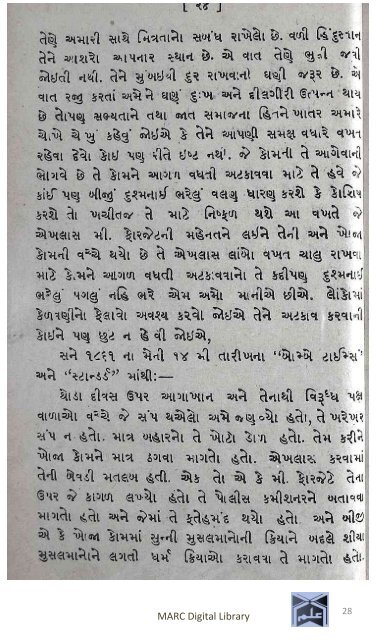 [ ૨૪ ]
તેણે અમારી સાથે મિત્રતાનો સબંધ રાખેલો છે. વળી હિંદુસ્તાન
તેને આશરો આપનાર સ્થાન છે. એ વાત તેણે ભુલી જવી
જોઇતી નથી. તેને મુંબઇથી દુર રાખવાની ઘણી જરૂર છે. એ
વાત રજી કરતાં અમેને ઘણું દુઃખ અને દીલગીરી ઉત્પન્ન થાય
છે તોપણ સભ્યતાને તથા જાત સમાજના હિતને ખાતર અમારે
ચોખે ચેખું કહેવું જોઇએ કે તેને આપણી સમક્ષ વધારે વખત
રહેવા દેવો કોઇ પણ રીતે ઇષ્ટ નથી. જે કોમની તે આગેવાની
ભોગવે છે તે કોમને આગળ વધતી અટકાવવા માટે તે હવે જે
કાંઈ પણ બીજું દુશ્મનાઈ ભરેલું વલણ ધારણ કરશે કે કોશિષ
કરશે તો ખચીતજ તે માટે નિષ્ફળ થશે આ વખતે જે
એખલાસ મી. ફોરજેટની મહેનતને લઇને તેની અને ખોજા
કોમની વચ્ચે થયો છે તે એખલાસ લાંબો વખત ચાલુ રાખવા
માટે કોમને આગળ વધતી અટકાવવાનો તે કદીપણ દુશ્મનાઇ
ભરેલું પગલું નહિ ભરે એમ અમો માનીએ છીએ. લોકોમાં
કેળવણીનો ફેલાવો અવશ્ય કરવો જોઈએ તેને અટકાવ કરવાની
કોઇને પણ છુટ ન હોવી જોઇએ,
સને ૧૮૬૧ ના મેની ૧૪ મી તારીખના “બોમ્બે ટાઈમ્સ”
અને “સ્ટાન્ડર્ડ” માંથી:—
થોડા દીવસ ઉપર આગાખાન અને તેનાથી વિરૂધ્ધ પક્ષ
વાળાઓ વચ્ચે જે સંપ થએલો અમે જણાવ્યો હતો, તે ખરેખર
સંપ ન હતો. માત્ર બહારનો તે ખોટો ડોળ હતો. તેમ કરીને
ખોજા કોમને માત્ર ઠગવા માગતો હતો. એખલાસ કરવામાં
તેની બેવડી મતલબ હતી. એક તો એ કે મી. ફોરજેટે તેના
ઉપર જે કાગળ લખ્યો હતો તે પોલીસ કમીશનરને બતાવવા
માગતો હતો અને જેમાં તે ફતેહમંદ થયો હતો અને બીજી
એ કે ખોજા કોમમાં સુન્ની મુસલમાનોની ક્રિયાને બદલે શીયા
મુસલમાનોને લગતી ધર્મ ક્રિયાઓ કરાવવા તે માગતો હતો.
MARC Digital Library
علم
28